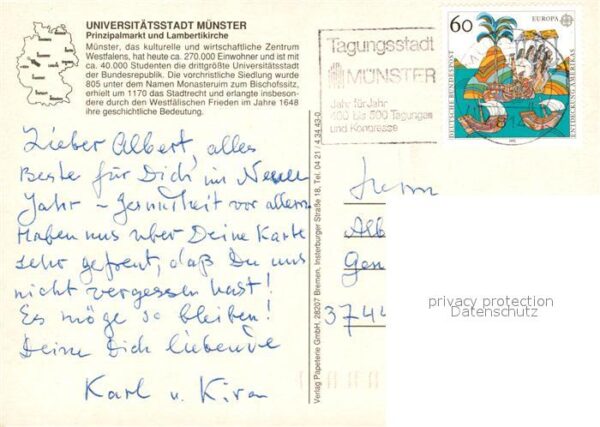 UNIVERSITÄTSSTADT MÜNSTER
Prinzipalmarkt und Lambertikirche
Münster, das kulturelle und wirtschaftliche Zentrum
Westfalens, hat heute ca. 270.000 Einwohner und ist mit
ca. 40.000 Studenten die drittgrößte Universitätsstadt
der Bundesrepublik. Die vorchristliche Siedlung wurde
805 unter dem Namen Monasteruim zum Bischofssitz,
erhielt um 1170 das Stadtrecht und erlangte insbeson-
dere durch den Westfälischen Frieden im Jahre 1648
ihre geschichtliche Bedeutung.
Lieber Albert, alles
Beste für Dich im Neuen
Jahr – Gesundheit vor allem.
Haben uns über Deine Karte
sehr gefreut, daß Du uns
nicht vergessen hast!
Es möge so bleiben!
Deine Dich liebende
Karl u.
Verlag Papeterie GmbH, 28207 Bremen, Insterburger Straße 18, Tel. 04 21 / 4 34 43-0
Tagungsstadt
MÜNSTER
Jahr für Jahr
400 bis 500 Tagungen
und Kongresse
60
EUROPA
DEUTSCHE BUNDESPOST
ENTDECKUNG AMERIKAS
Herrn
Alb
3744
privacy protection
Datenschutz